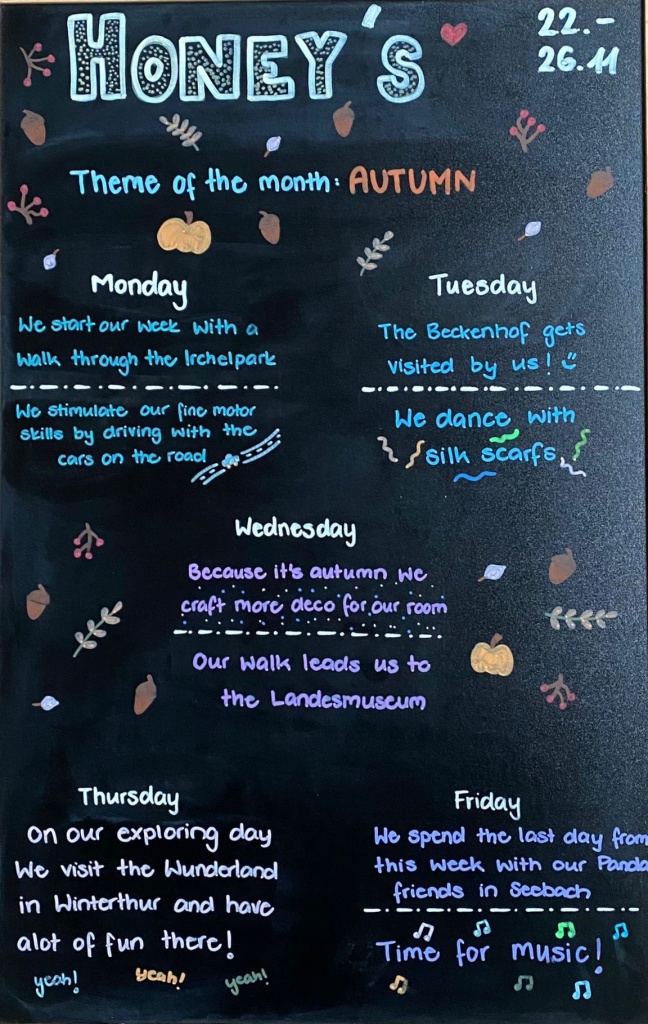 HONEY'S
22.-
26.11
Theme of the month: AUTUMN
Monday
We start our week with a
walk through the Irchelpark
We stimulate our fine motor
skills by driving with the
cars on the road
Tuesday
The Beckenhof gets
visited by us!
We dance with
silk scarfs
Wednesday
Because it's autumn we
craft more deco for our room
Our walk leads us to
the Landesmuseum
Thursday
On our exploring day
We visit the Wunderland
in Winterthur and have
alot of fun there!
yeah! yeah! yeah!
Friday
We spend the last day from
this week with our Panda
friends in Seebach
Time for music!